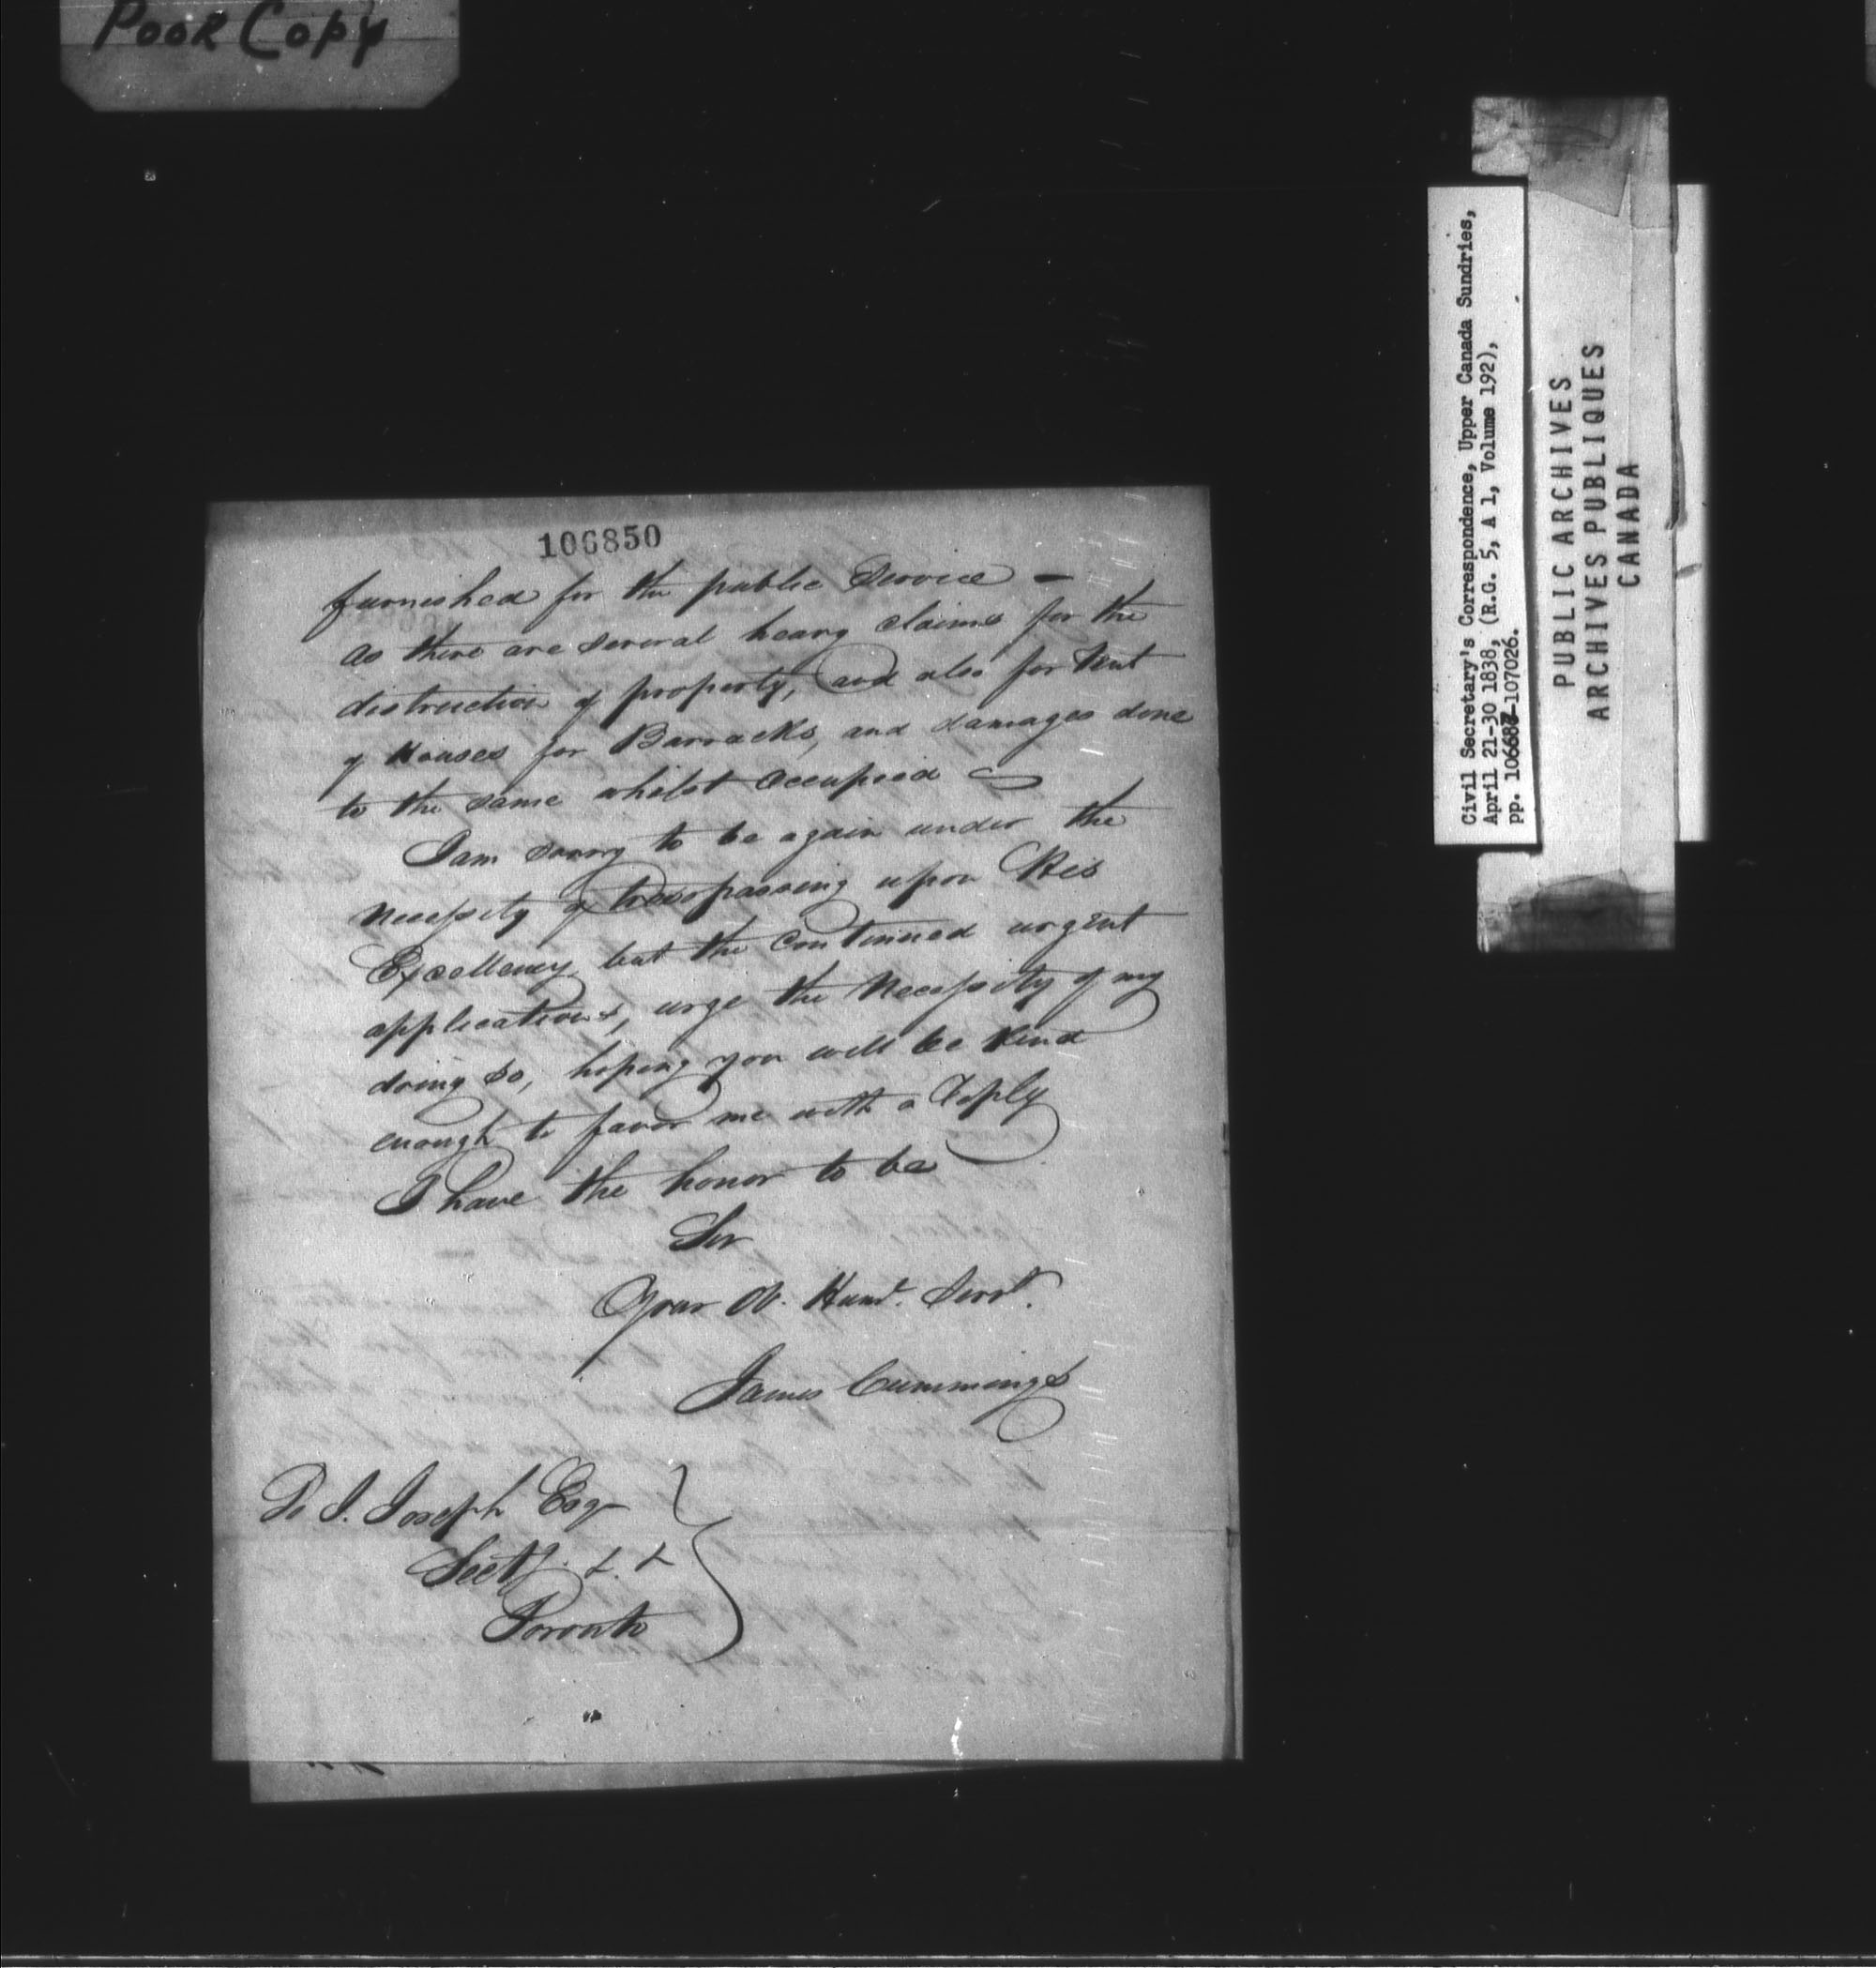 Poor Copy
106850
furnished for the public Service -
as there are several heavy claims for the
distruction of property, and also for Rent
of Houses for Barracks, and damages done
to the same whilst occupied
I am sorry to be again under the
necessity of tresspassing upon His
Excellency, but the continued urgent
applications, urge the necessity of my
doing so, hoping you will be kind
enough to favor me with a reply
I have the honor to be
Sir
Your Ob. Humb. Servt.
James Cummings
To J. Joseph Esqr
Secty. &. &
Toronto
Civil Secretary's Correspondence, Upper Canada Sundries,
April 21-30 1838, (R.G. 5, A 1, Volume 192),
pp. 106687-107026.
PUBLIC ARCHIVES
ARCHIVES PUBLIQUES
CANADA